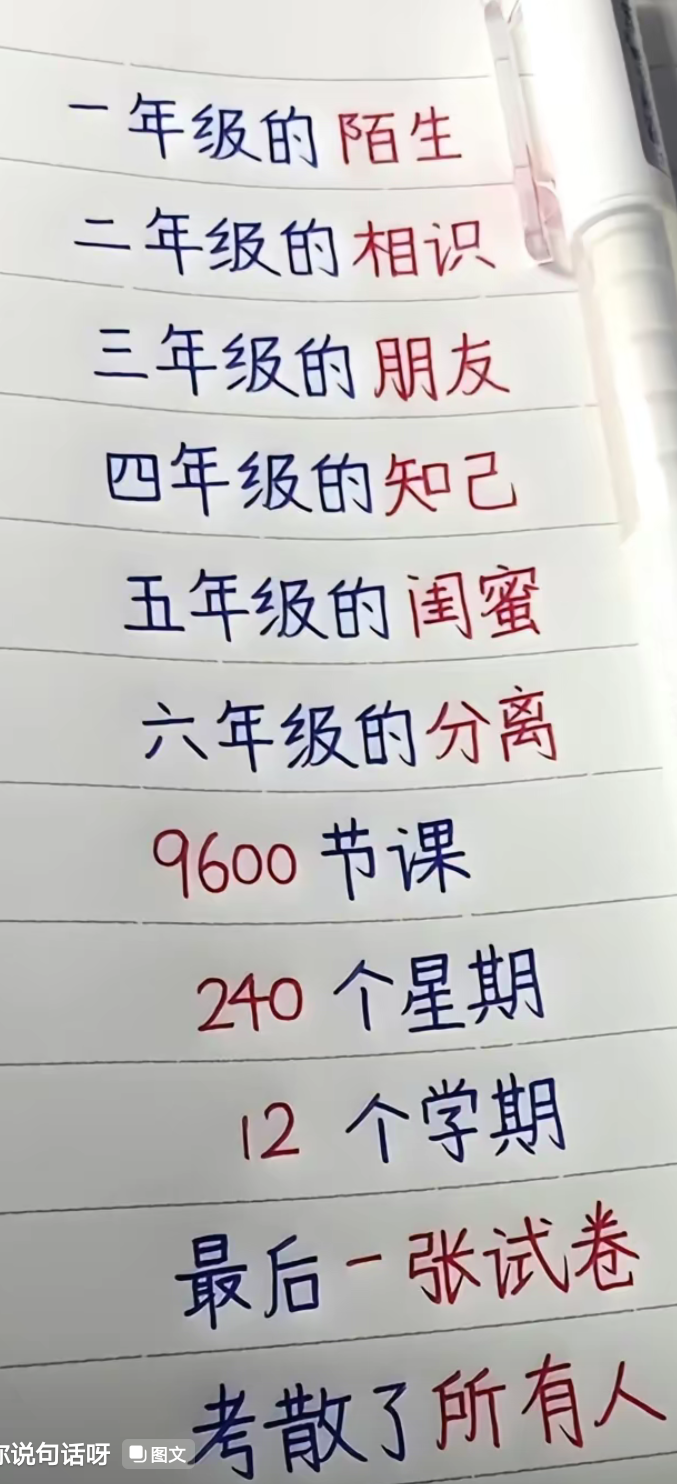 一年级的陌生
二年级的相识
三年级的朋友
四年级的知己
五年级的闺蜜
六年级的分离
9600节课
240个星期
12个学期
最后一张试卷
考散了所有人
你说句话呀 图文